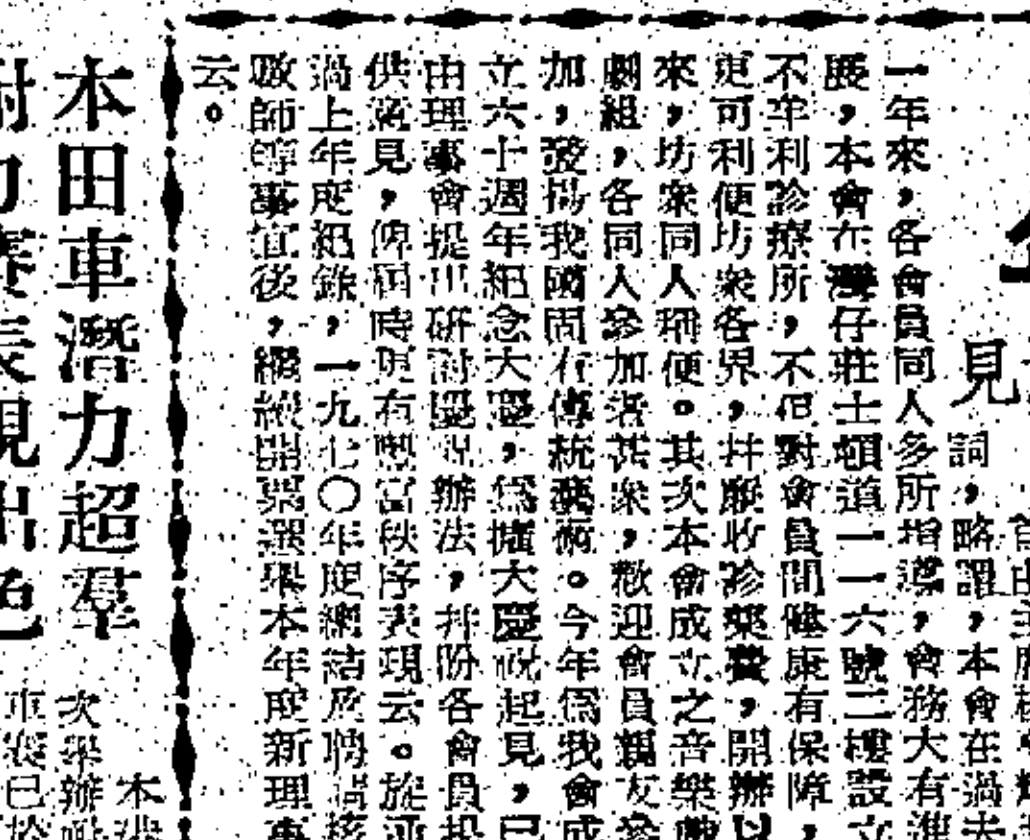 見
詞，略謂，本會在過去
一年來，各會員同人多所指導，會務大有進
展，本會在灣仔莊士頓道一一六號三樓設立
不牟利診療所，不但對會員間健康有保障，
更可利便坊衆各界，并廉收診藥費，開辦以
來，坊衆同人稱便。其次本會成立之音樂戲
劇組，各同人參加者甚衆，歡迎會員親友參
加，發揚我國固有傳統藝術。今年爲我會成
立六十週年紀念大慶，爲擴大慶祝起見，已
由理事會提出研討慶祝辦法，并盼各會員提
供意見，俾屆時更有豐富秩序表現云。旋通
過上年度紀錄，一九七〇年度總結及聘請核
敬師等事宜後，繼續開票選舉本年度新理事
云。
本田車潛力超羣
耐力賽表現出色
次舉辦
車表已於